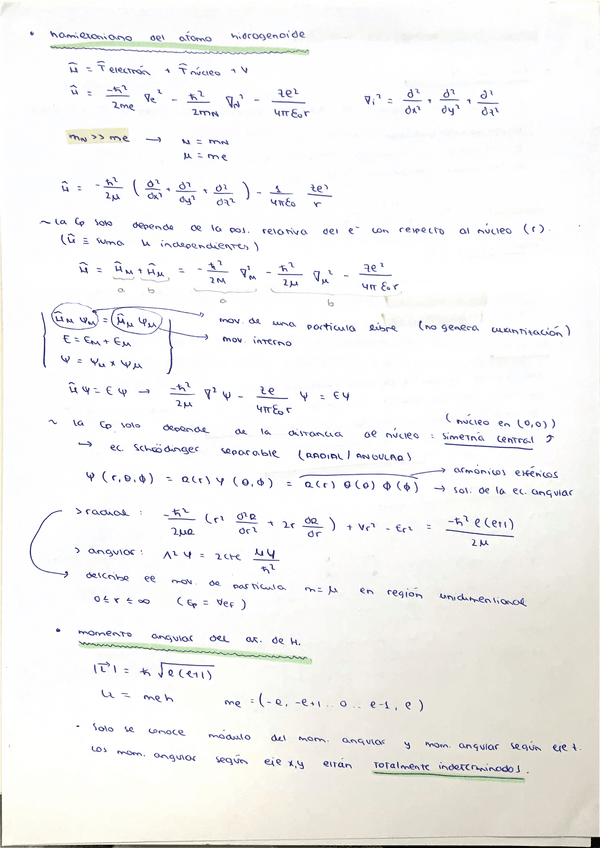 • hamiltoniano del átomo hidrogenoide
Ĥ = T̂ electrón + T̂ núcleo + V
Ĥ = -ħ²/2me ∇e² - ħ²/2mN ∇N² - ze²/4πε₀r    ∇i² = ∂²/∂x² + ∂²/∂y² + ∂²/∂z²
mN >> me → M = mN
μ = me
Ĥ = -ħ²/2μ (∂²/∂x² + ∂²/∂y² + ∂²/∂z²) - 1/4πε₀ ze²/r
~ la Ep solo depende de la pos. relativa del e⁻ con respecto al núcleo (r).
(Ĥ ≡ suma H independientes)
Ĥ = ĤM + Ĥμ = -ħ²/2M ∇²M - ħ²/2μ ∇μ² - ze²/4πε₀r
a b a b
ĤM ψM = Ĥμ ψμ → mov. de una partícula libre (no genera cuantización)
E = EM + Eμ → mov. interno
Ψ = ΨM × Ψμ
ĤΨ = EΨ → -ħ²/2μ ∇²Ψ - ze/4πε₀r Ψ = EΨ
(núcleo en (0,0))
~ la Ep solo depende de la distancia al núcleo : simetría central ↑
→ ec. Schöödinger separable (RADIAL / ANGULAR)
Ψ (r, θ, ϕ) = R(r) Y (θ, ϕ) = R(r) Θ(θ) Φ(ϕ) → armónicos esféricos
→ sol. de la ec. angular
> radial : -ħ²/2μR (r² d²R/dr² + 2r dR/dr) + Vr² - Er² = -ħ² l(l+1)/2μ
> angular : Λ²Ψ = 2cte μΨ/ħ²
→ describe el mov. de partícula m=μ en región unidimensional
0 ≤ r ≤ ∞ (Ep = Vef)
• momento angular del át. de H.
|L⃗| = ħ √l(l+1)
Lz = meħ    me = (-l, -l+1 .. 0 .. l-1, l)
- Solo se conoce módulo del mom. angular y mom. angular según eje z.
Los mom. angular según eje x,y están totalmente indeterminados.